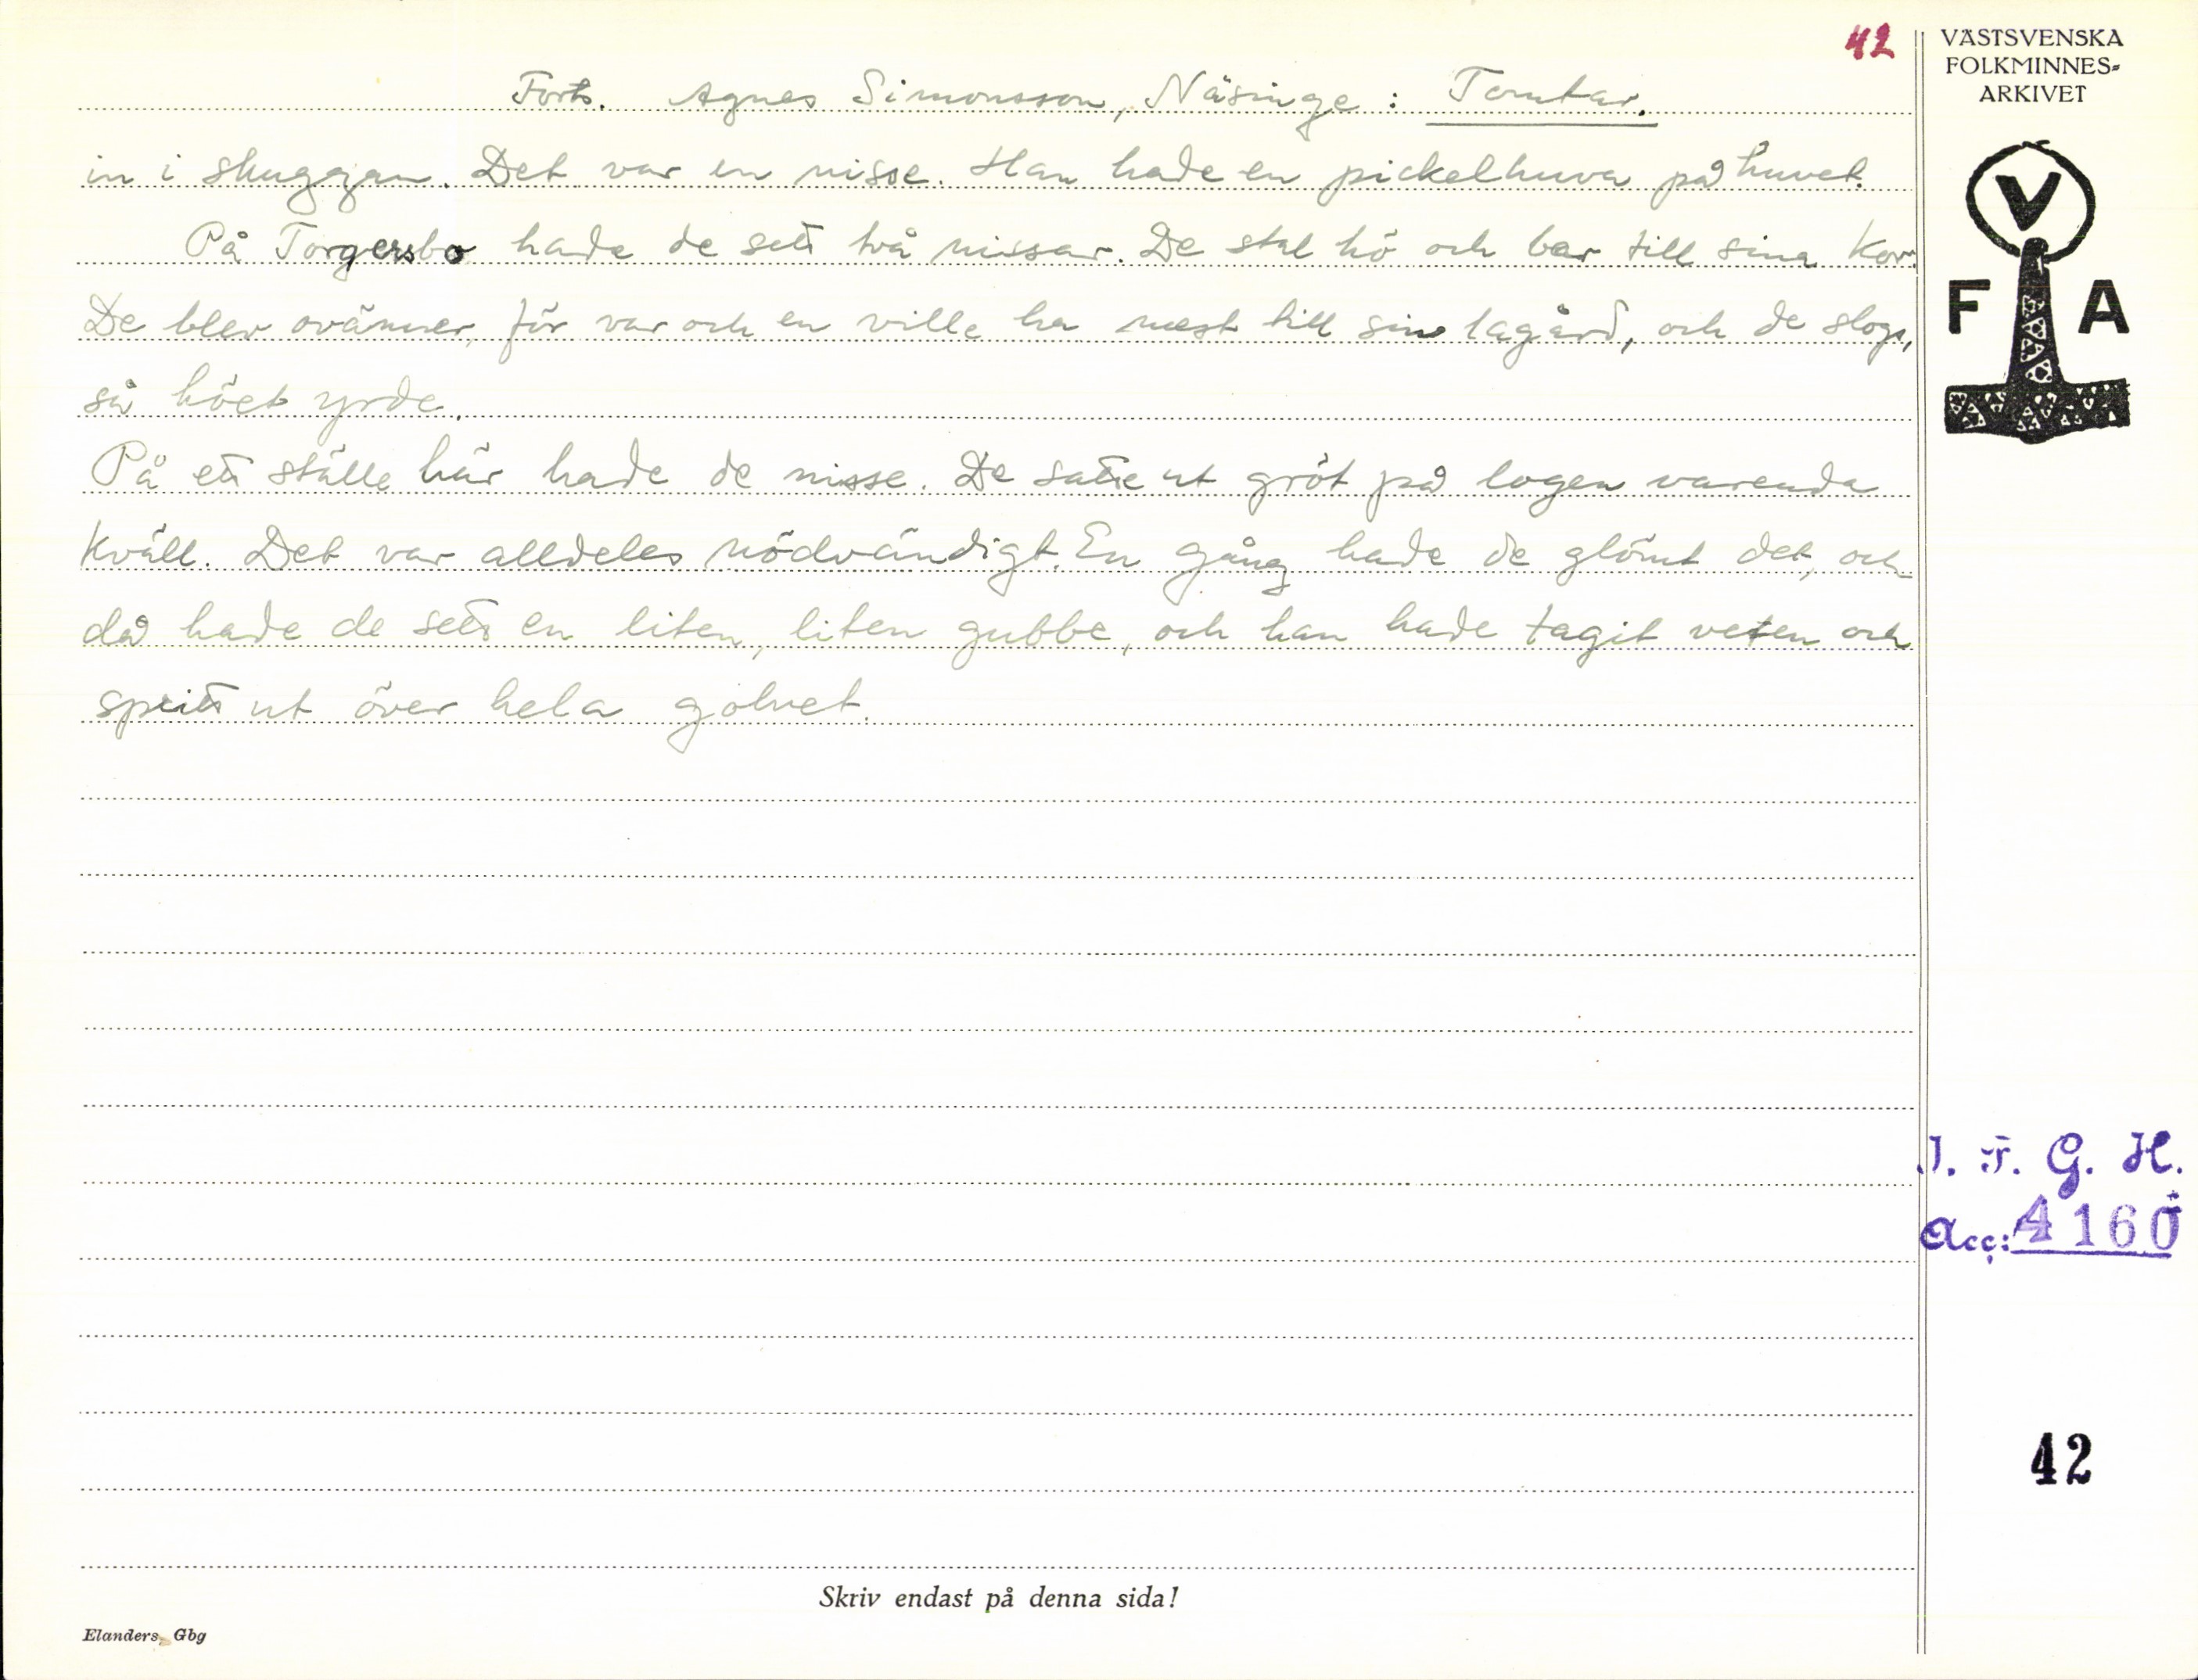 42
Forts. Agnes Simonsson, Näsinge: Tomtar.
in i skuggan. Det var en nisse. Han hade en pickelhuva på huvet.
På Torgersbo hade de sett två nissar. De stal hö och bar till sina kor.
De blev ovänner, för var och en ville ha mest till sin lagård, och de slogs,
så höet yrde.
På ett ställe här hade de nisse. De satte ut gröt på logen varenda
kväll. Det var alldeles nödvändigt. En gång hade de glömt det, och
då hade de sett en liten, liten gubbe, och han hade tagit veten och
spritt ut över hela golvet.
Skriv endast på denna sida!
Elanders, Gbg
VÄSTSVENSKA
FOLKMINNES-
ARKIVET
V
F A
I. F. G. H.
Acc: 4160
42